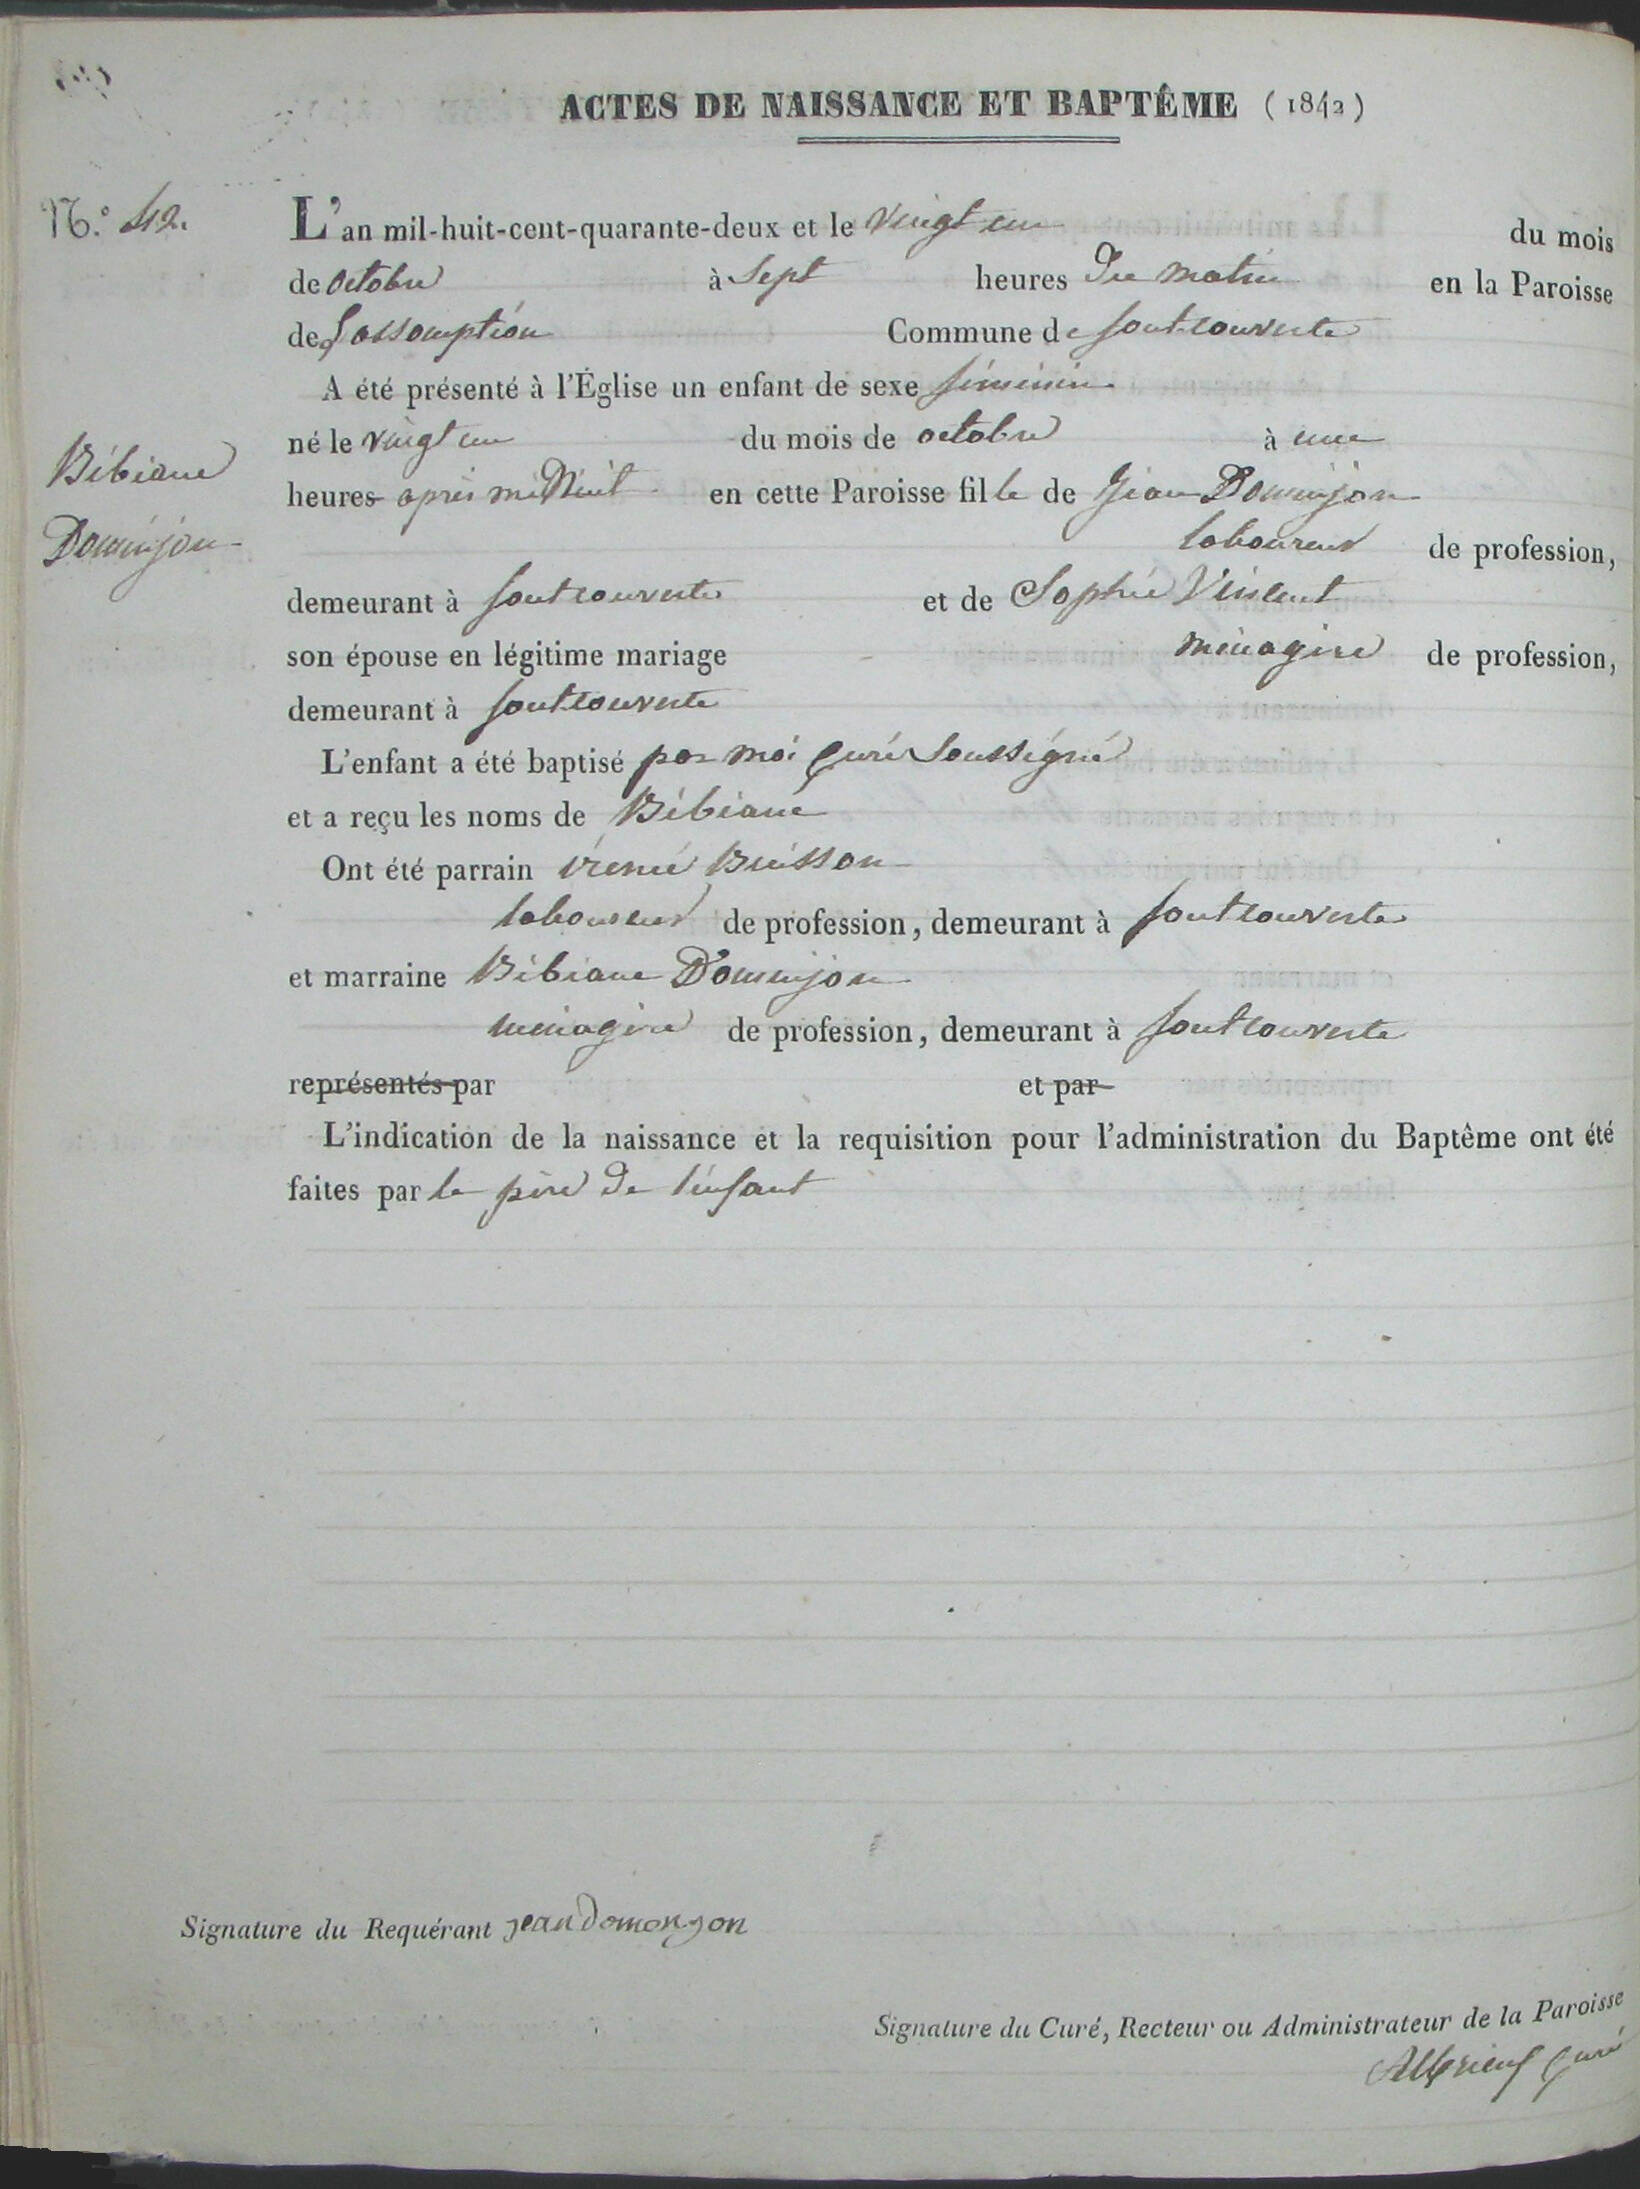 ACTES DE NAISSANCE ET BAPTÊME (1842)
N.° 42.
L'an mil-huit-cent-quarante-deux et le vingt un du mois
de octobre à sept heures du matin en la Paroisse
de Lassomption Commune de fontcouverte
A été présenté à l'Église un enfant de sexe féminin
né le vingt un du mois de octobre à une
Bibiane
Dominjon
heures après miNuit en cette Paroisse fille de Jean Dominjon
laboureur de profession,
demeurant à fontcouverte et de Sophie Vincent
son épouse en légitime mariage ménagère de profession,
demeurant à fontcouverte
L'enfant a été baptisé par moi Curé Soussigné
et a reçu les noms de Bibiane
Ont été parrain irené Buisson
laboureur de profession, demeurant à fontcouverte
et marraine Bibiane Dominjon
ménagère de profession, demeurant à fontcouverte
représentés par et par
L'indication de la naissance et la requisition pour l'administration du Baptême ont été
faites par le père de l'enfant
Signature du Requérant jean domonjon
Signature du Curé, Recteur ou Administrateur de la Paroisse
Curé